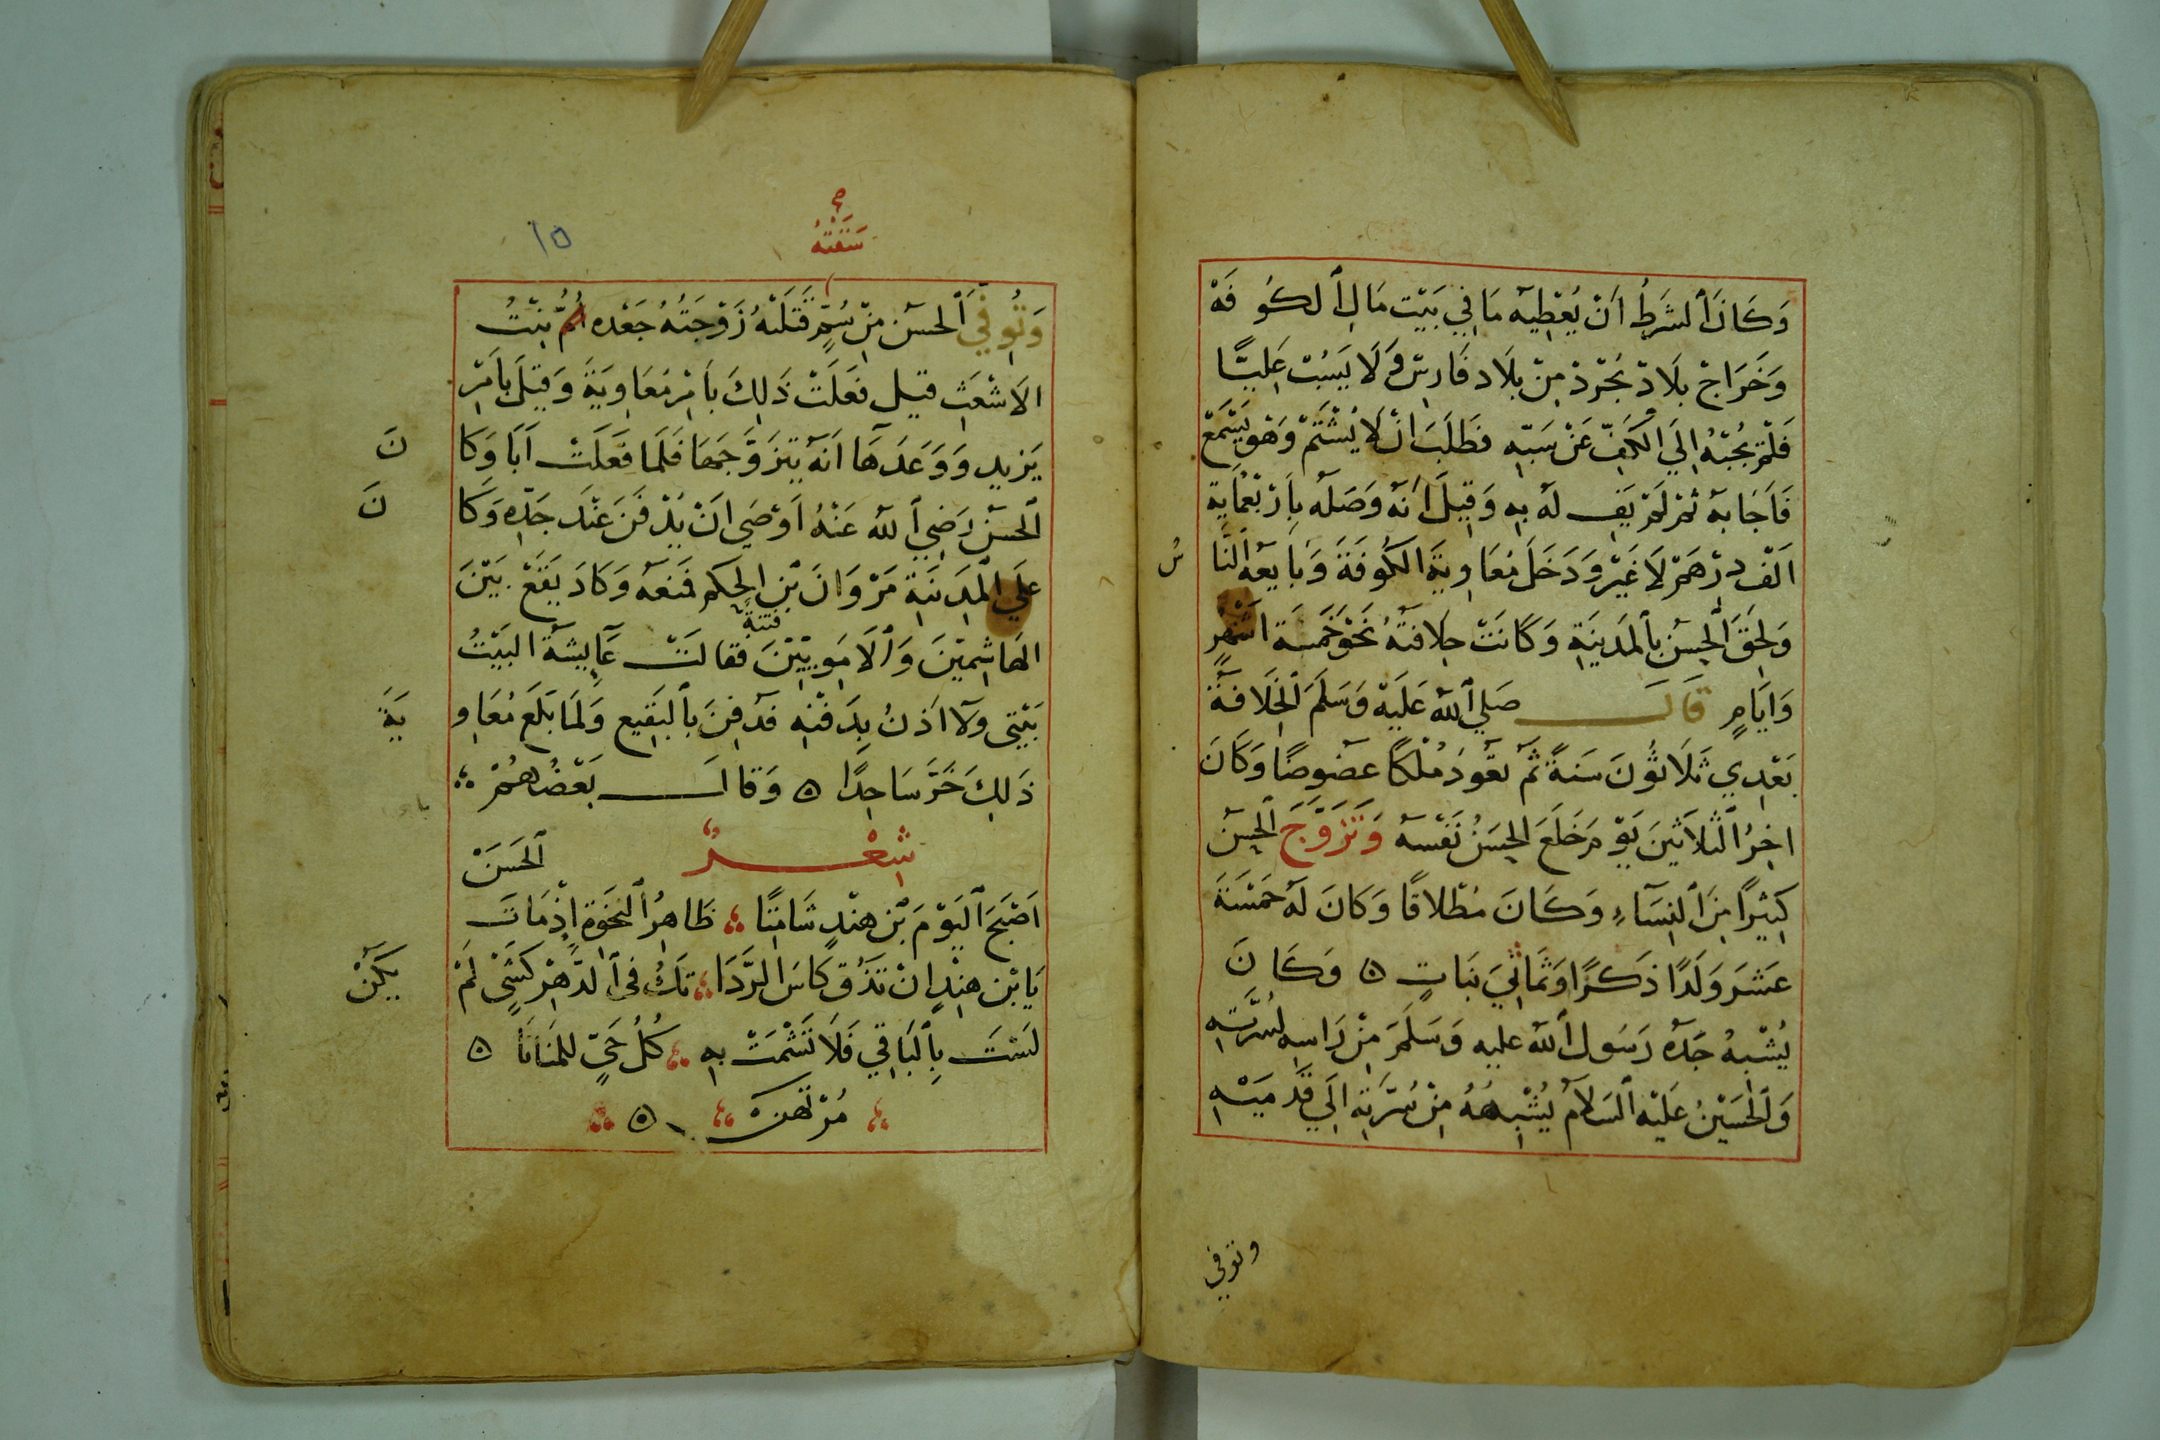 وَكَانَ ٱلشَرطُ اَنْ يُعْطِيه مَا فِي بَيْت مَالِ ٱلكُوفَة
وَخَرَاجْ بلَادْ بجْردْ مِنْ بِلَاد فَارِسْ وَلَا يَسُبّ عَلِيًّا
فَلَمْ يُجبْهُ اِلَي الكَفِّ عَنْ سَبّه فطَلَبَ انْ لَا يُشْتَمْ وَهو يَسْمَعْ
فَاَجَابهُ ثمْ لَمْ يَفِ لهُ بِهِ وَقِيلَ اَنهُ وَصَلَه بِاَرْبَعْمَاية
اَلْف دِرْهَمْ لَا غَيْر وَدَخَلَ مُعَاوِيَةَ الكُوفَةَ وَبايعهُ ٱلنَّا
سُ
وَلحِقَ الحِسَنْ بِٱلمَدينَةِ وَكَانَتْ خِلافتهُ نَحْو خَمسَة اشْهُرٍ
وَايَامٍ قَالَ صَلي ٱللهُ عَلَيهِ وَسَلمَ ٱلْخَلافَة
بَعْدِي ثَلَاثُونَ سَنَةً ثُم تعُودُ مُلْكًا عضُوضًا وَكَانَ
اخِرُ ٱلثَلاثينَ يَوْمَ خَلَعَ الحِسَنُ نَفْسه وَتَزَوَّجَ ٱلحِسن
كِثيرًا مِنَ ٱلنِسَاءِ وَكَانَ مُطْلاقًا وَكَانَ لَهُ خَمْسَةَ
عَشَرَ وَلَدًا ذَكرًا وَثمَانِيَ بَنَاتٍ ٥ وَكَانَ
يُشْبهُ جَدهُ رَسُول ٱلله عليه وَسَلمَ مِنْ رَاسِهِ لسُرَّتهِ
وَٱلحُسَيْنُ عَليْهِ ٱلسَلَامُ يُشْبِهُهُ مِنْ سُرَّتِهِ اِلَي قَدميَه
وتوفي
سَنَتهُ
١٥
وَتُوفِّيَ ٱلحسَن مِنْ سُمٍّ قَتَلتْهُ زَوْجَتهُ جَعْده بِنْتُ
الاَشْعَثِ قيل فعَلَتْ ذَلِكَ بأمْرِ مُعَاوِيَةَ وَقِيلَ بِاَمْرِ
يَزيد وَوَعَدَهَا اَنهُ يتزَوَّجهَا فَلَما فَعَلَتْ اَبَا وَكَا
نَ
الحسَنْ رَضِي ٱللهُ عَنْهُ اَوْصَي انْ يُدْفَنَ عَنْدَ جَدّهِ وَكَا
نَ
عَلَي المَدِينَةِ مَرْوَانَ بْنِ الحِكم فَمَنعهُ وَكَادَ يَقَعْ بَيْنَ
الهَاشِميّنَ وَٱلاَمَوِييّنَ فتنة فقالتْ عَايِشهُ البَيْتُ
بَيْتِي ولا اَذنُ بِدَفْنهِ فدُفِنَ بِٱلبَقِيع وَلَمَا بَلَغَ مُعَاوِ
يَةَ
ذَلِكَ خَرَّ سَاجِدًا ٥ وَقالَ بَعْضُهُمْ
شِعْرٌ
اَصْبَحَ ٱليَوْمَ بْن هِنْدٍ شَامِتًا ظَاهِرُ ٱلنَخوَة اِذْ مَاتَ ٱلحَسَنْ
يَا بْن هِنْدٍ انْ تَذُقْ كَاسَ الرَّدَا تَكُ في ٱلدَّهْرِ كَشَيْ لَمْ يَكُنْ
لسْتَ بِٱلبَاقِي فَلَا تَشْمَتْ بِهِ كُلُ حَيٍّ للمَنَايَا ٥
مُرْتَهنْ ٥